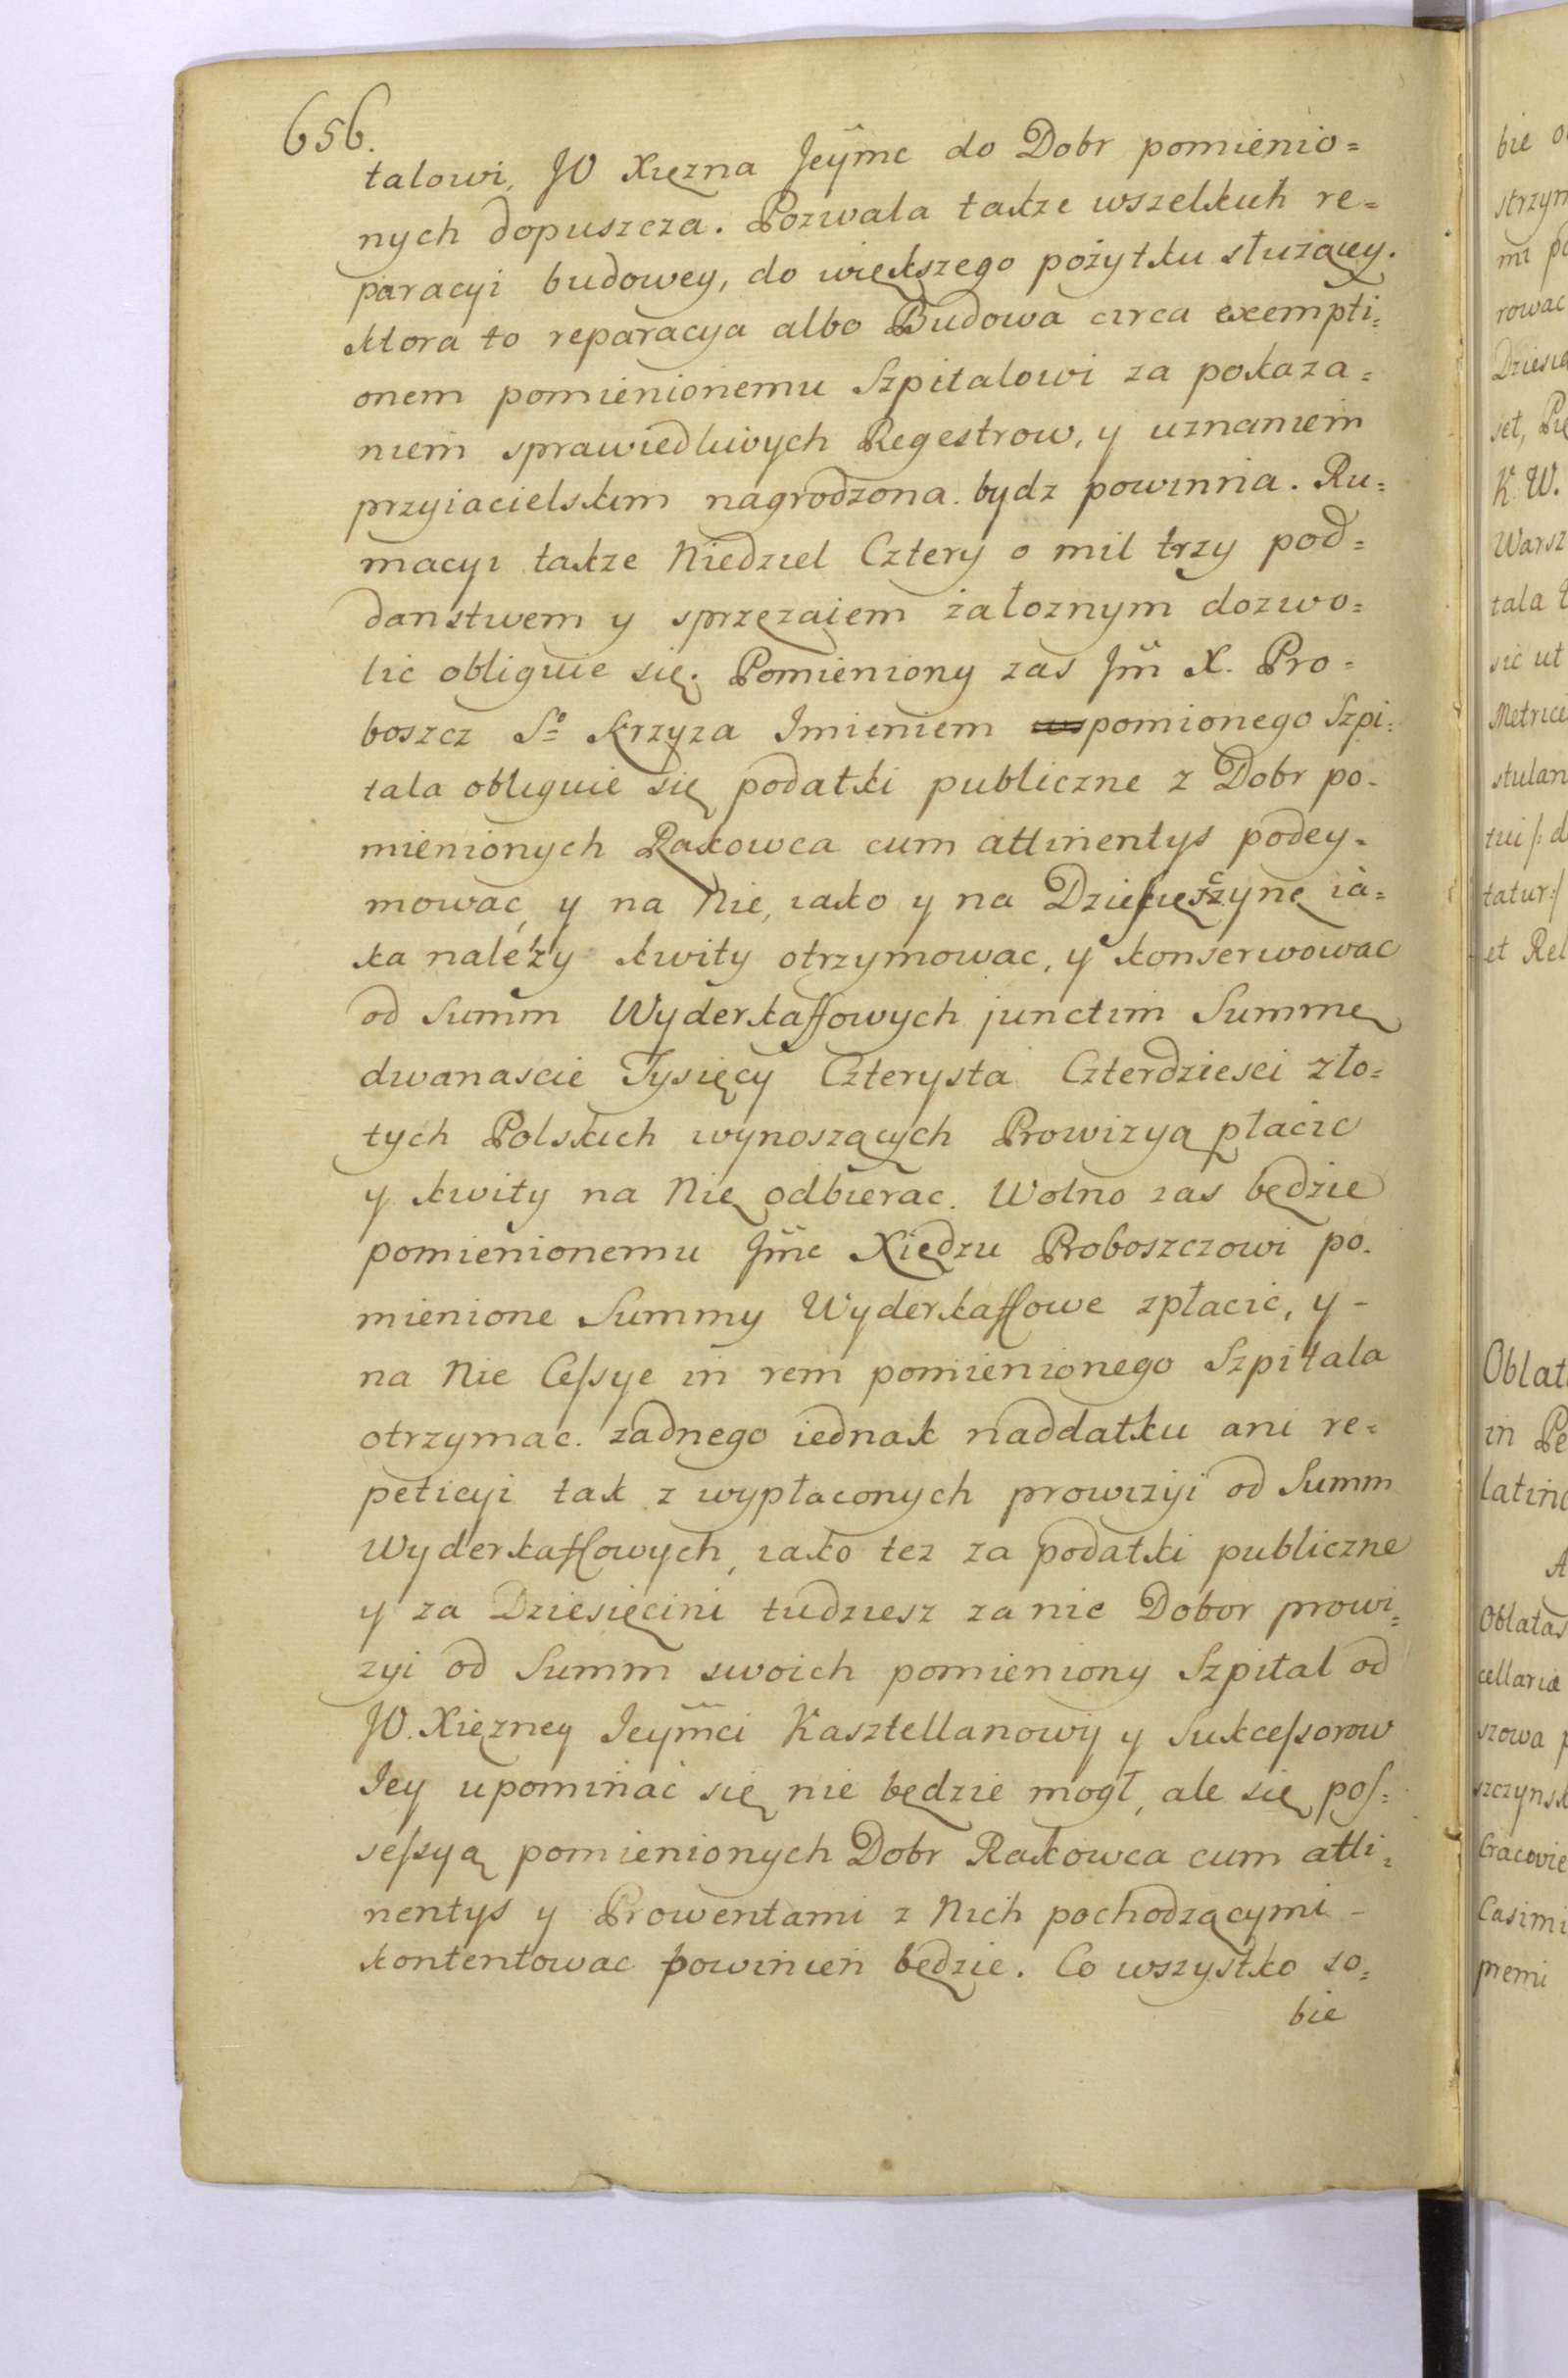 656.
talowi, JO Xięzna Jeÿmc do Dobr pomienio=
nych dopuszcza. Pozwala takze wszelkich re=
paracyi budowey, do większego pożytku służącey.
ktora to reparacya albo Budowa circa exempti=
onem pomienionemu Szpitalowi za pokaza=
niem sprawiedliwych Regestrow, y uznaniem
przyiacielskim nagrodzona bydz powinna. Ru=
macyi takze Niedziel Cztery o mil trzy pod=
danstwem y sprzęzaiem załoznym dozwo=
lic obliguie się. Pomieniony zas Jm̃ X. Pro=
boszcz So Krzyza Imieniem pomionego Szpi=
tala obliguie się podatki publiczne z Dobr po=
mienionych Rakowca cum attinentys podey=
mowac, y na Nie, iako y na Dziesięczynę ia=
ka należy kwity otrzymowac, y konserwowac
od Summ Wyderkaffowych junctim Summę
dwanascie Tysięcy Czterysta Czterdziesci zło=
tych Polskich wynoszących Prowizyą płacic
y kwity na Nię odbierac. Wolno zas będzie
pomienionemu Jm̃c Xiędzu Proboszczowi po=
mienione Summy Wyderkaffowe zpłacić, y -
na Nie Cessye in rem pomienionego Szpitala
otrzymac. zadnego iednak naddatku ani re=
peticyi tak z wypłaconych prowizyi od Summ
Wyderkaffowych, iako tez za podatki publiczne
y za Dziesięcini tudziesz za nie Dobor prowi=
zyi od Summ swoich pomieniony Szpital od
JO. Xięzney Jeym̃ci Kasztellanowÿ y Sukcessorow
Jey upominać się nie będzie mogł, ale się pos=
sessyą pomienionych Dobr Rakowca cum atti=
nentys y Prowentami z Nich pochodzącymi -
kontentowac powinien będzie. Co wszystko so=
bie
bie
strzym
mi
rowac
set,
K. W.
Warsz
tala
sic ut
Metrice
stulan
tatur:/
et Rel
Oblat
in
latin
Oblatas
cellaria
szowa
szczynsk
Cracovie
Casimi
premi